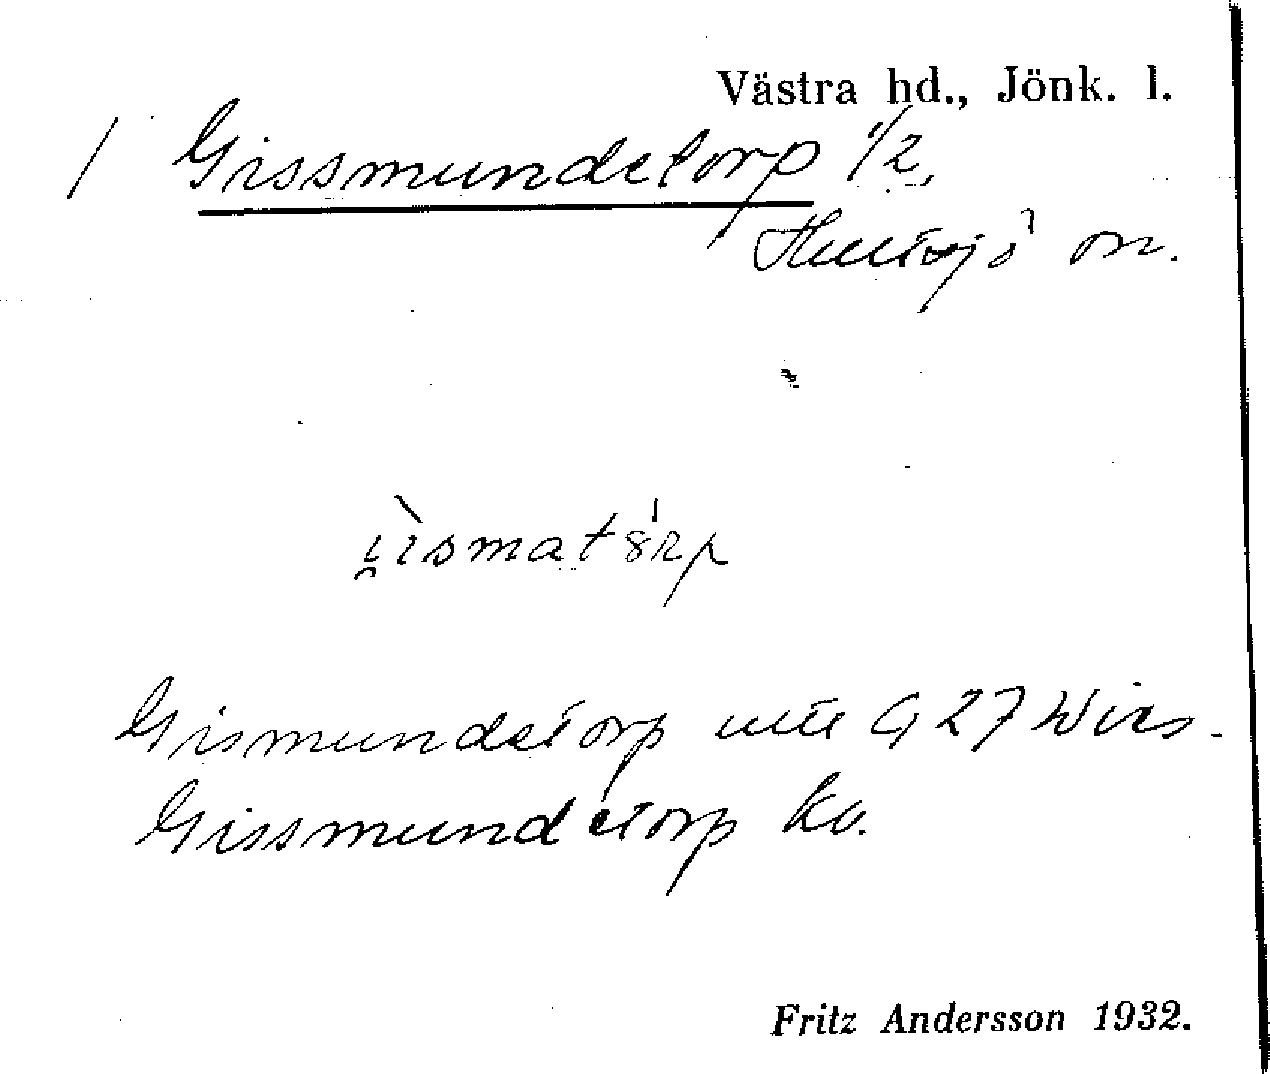 Västra hd., Jönk. l.
/ Gissmundetorp 1/2,
Hultsjö sn.
Gismundetorp utu G 27
Gissmundetorp
Fritz Andersson 1932.